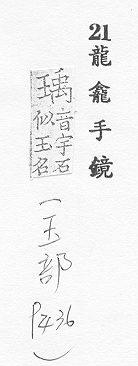 21龍龕手鏡
瑀音宇石
似玉名
(玉部
P436)